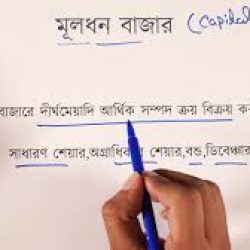 মূলধন বাজার (Capital
বাজারে দীর্ঘমেয়াদি আর্থিক সম্পদ ক্রয় বিক্রয় ক
সাধারণ শেয়ার,অগ্রাধিকার শেয়ার,বন্ড,ডিবেঞ্চার